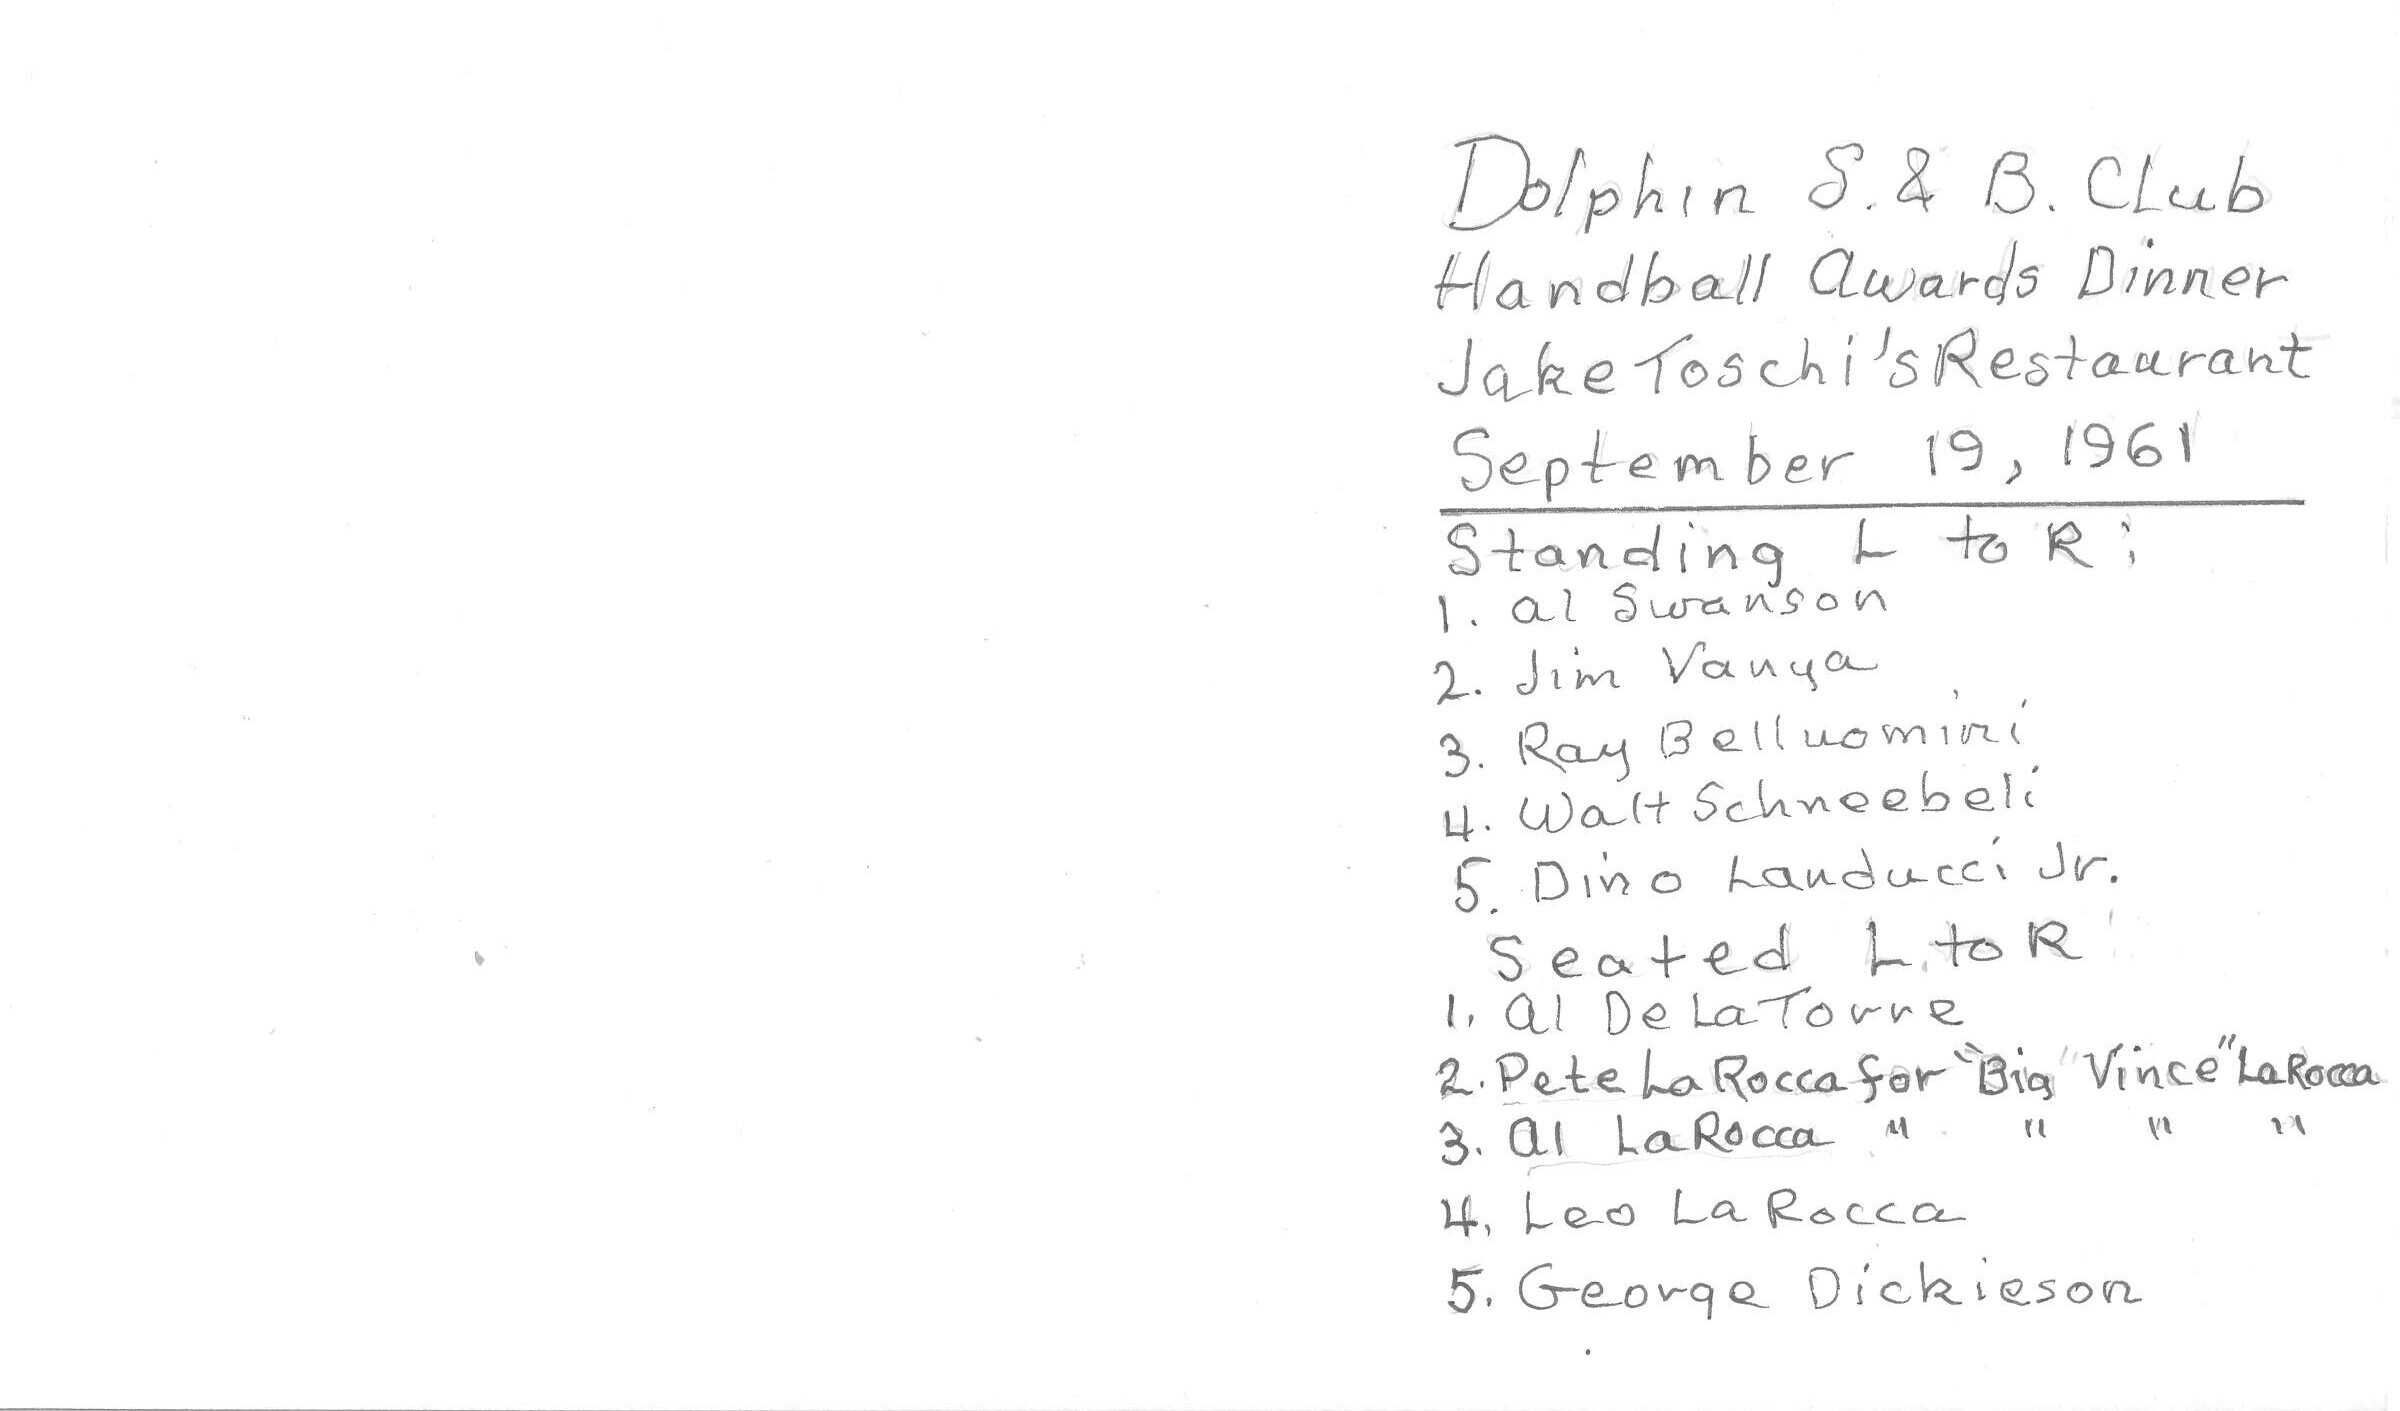 Dolphin S. & B. Club
Handball Awards Dinner
Jake Toschi's Restaurant
September 19, 1961
Standing L to R:
1. Al Swanson
2. Jim Vanya
3. Ray Belluomini
4. Walt Schneebeli
5. Dino Landucci Jr.
Seated L to R
1. Al DeLaTorre
2. Pete LaRocca for "Big Vince" LaRocca
3. Al LaRocca " " " "
4. Leo LaRocca
5. George Dickieson